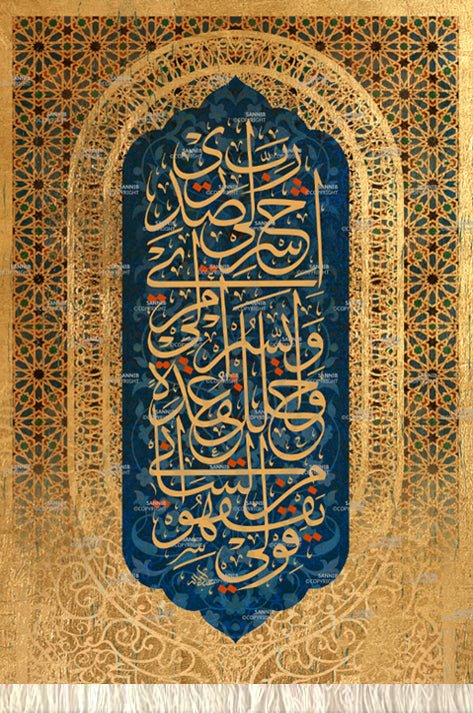 رَبِّ اشْرَحْ لِي صَدْرِي
وَيَسِّرْ لِي أَمْرِي
وَاحْلُلْ عُقْدَةً
مِنْ لِسَانِي
يَفْقَهُوا
قَوْلِي
SANNIB
©COPYRIGHT